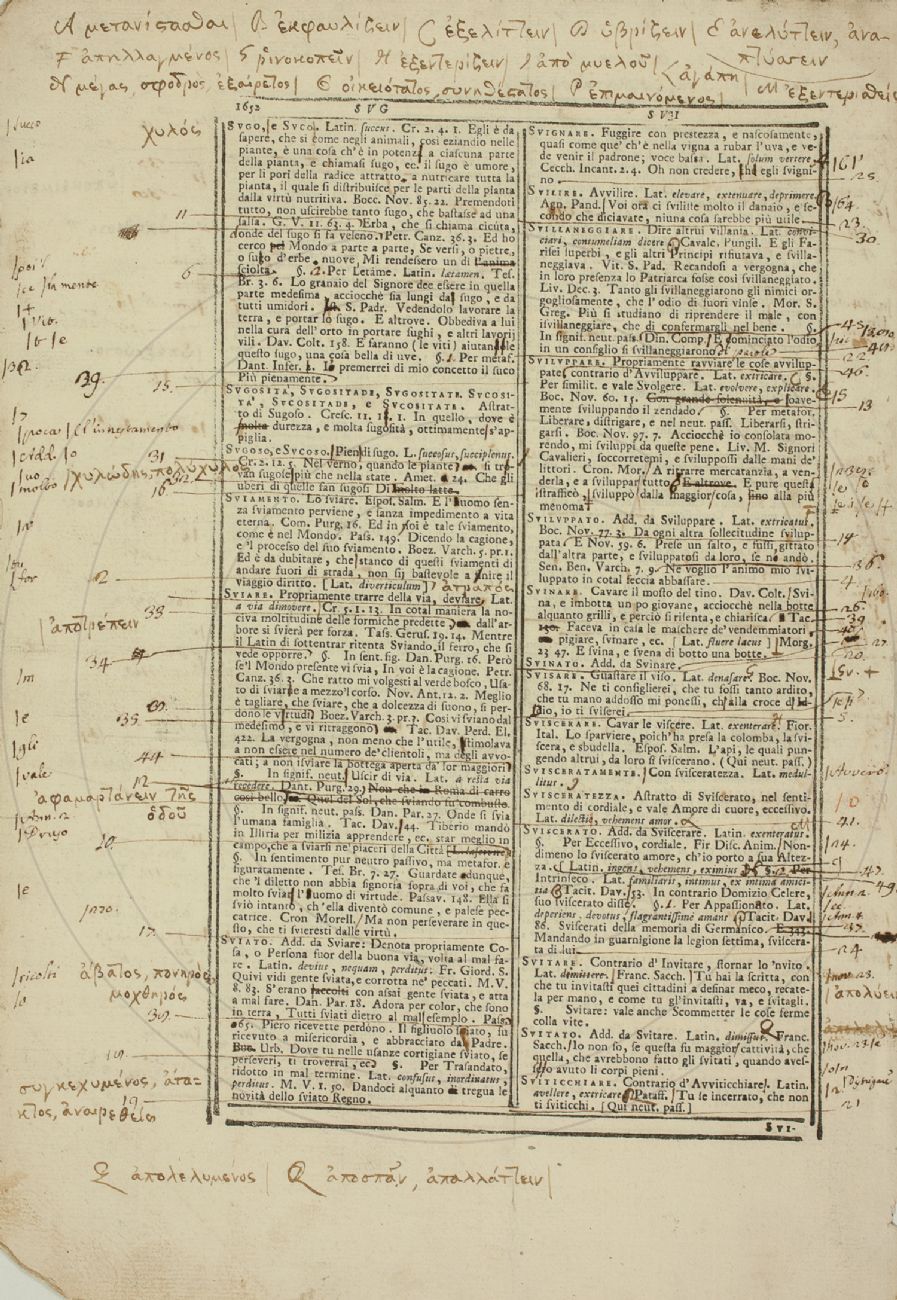 A μετανίςασθαι| B ἐκφαυλίζειν| C ἐξελίττειν| D ὑβρίζειν| E ἀνελύττειν, ἀνα-
πτύσσειν
F ἀπηλλαγμένος| G ῥινοκοπεῖν| H ἐξεντερίζειν| I ἀπὸ μυελοῦ| ἀγάπη|
N μέγας, σφοδρὸς, ἐξαίρετος| O οἰκειότατος, συνηθέςατος| P ἐπιμαινόμενος| M ἐξεντερισθείς
1652 SVG
SVGO, e SVCO. Latin. succus. Cr. 2. 4. 1. Egli è da
sapere, che sì come negli animali, così eziandio nelle
piante, è una cosa ch'è in potenza a ciascuna parte
della pianta, e chiamasi sugo, ec. il sugo è umore,
per li pori della radice attratto, a nutricare tutta la
pianta, il quale si distribuisce per le parti della pianta
dalla virtù nutritiva. Bocc. Nov. 85. 22. Premendoti
tutto, non uscirebbe tanto sugo, che bastasse ad una
salsa. G. V. 11. 63. 4. Erba, che si chiama cicuta,
onde del sugo si fa veleno. Petr. Canz. 36. 3. Ed ho
cerco poi Mondo a parte a parte, Se versi, o pietre,
o sugo d'erbe nuove, Mi rendessero un dì l'anima
sciolta. §. 2. Per Letáme. Latin. lætamen. Tes.
Br. 3. 6. Lo granaio del Signore dee essere in quella
parte medesima, acciocchè sia lungi dal sugo, e da
tutti umidori. S. Padr. Vedendolo lavorare la
terra, e portar lo sugo. E altrove. Obbediva a lui
nella cura dell'orto in portare sughi, e altri lavorii
vili. Dav. Colt. 158. E saranno (le viti) aiutando le
questo sugo, una cosa bella di uve. §. 1. Per metaf.
Dant. Infer. Io premerrei di mio concetto il suco
Più pienamente.
SVGOSITÀ, SVGOSITADE, SVGOSITATE, SVCOSI-
TA', SVCOSITADE, e SVCOSITATE. Astrat-
to di Sugoso. Cresc. 11. 18. 1. In quello, dove è
molta durezza, e molta sugosità, ottimamente s'ap-
piglia.
SVGOSO, e SVCOSO. Pien di sugo. L. succosus, succiplenus.
Cr. 2. 12. 5. Nel verno, quando le piante si tro-
van sugose più che nella state. Amet. 24. Che gli
uberi di quelle fan sugosi Di molto latte.
SVIAMENTO. Lo sviare. Espos. Salm. E l'uomo sen-
za sviamento perviene, e sanza impedimento a vita
eterna. Com. Purg. 16. Ed in noi è tale sviamento,
come è nel Mondo. Pass. 149. Dicendo la cagione,
e'l processo del suo sviamento. Boez. Varch. 5. pr. 1.
Ed è da dubitare, che stanco di questi sviamenti di
andare fuori di strada, non sij bastevole a finire il
viaggio diritto. [Lat. diverticulum] ἀτραπός
SVIARE. Propriamente trarre della via, deviare. Lat.
a via dimovere. Cr. 5. 1. 13. In cotal maniera la no-
civa moltitudine delle formiche predette dall'ar-
bore si svierà per forza. Tass. Gerus. 19. 14. Mentre
il Latin di sottentrar ritenta Sviando il ferro, che si
vede opporre. §. In sent. fig. Dan. Purg. 16. Però
se'l Mondo presente vi svia, In voi è la cagione. Petr.
Canz. 36. 3. Che ratto mi volgesti al verde bosco, Usa-
to di sviarne a mezzo'l corso. Nov. Ant. 12. 2. Meglio
è tagliare, che sviare, che a dolcezza di suono, si per-
dono le virtudi. Boez. Varch. 3. pr. 7. Così vi sviano dal
medesimo, e vi ritraggono. Tac. Dav. Perd. El.
422. La vergogna, non meno che l'utile, stimolava
a non essere nel numero de'clientoli, ma degli avvo-
cati; a non isviare la bottega aperta da'lor maggiori.
§. In signif. neut. Uscir di via. Lat. a recta via
recedere. Dant. Purg. 29. Non che in Roma di carro
così bello, Quel del Sol, che sviando fu combusto.
§. In signif. neut. pass. Dan. Par. 27. Onde si svia
l'umana famiglia. Tac. Dav. 44. Tiberio mandò
in Illiria per milizia apprendere, ec. star meglio in
campo, che a sviarsi ne'piaceri della Città
§. In sentimento pur neutro passivo, ma metafor. e
figuratamente. Tes. Br. 7. 27. Guardate adunque,
che'l diletto non abbia signoria sopra di voi, che fa
molto sviar l'uomo di virtude. Passav. 148. Ella si
sviò intanto, ch'ella diventò comune, e palese pec-
catrice. Cron Morell. Ma non perseverare in que-
sto, che ti svieresti dalle virtù.
SVIATO. Add. da Sviare: Denota propriamente Co-
sa, o Persona fuor della buona via, volta al mal fa-
re. Latin. devius, nequam, perditus. Fr. Giord. S.
Vidi gente sviata, e corrotta ne' peccati. M. V.
8. 83. S'erano raccolti con assai gente sviata, e atta
a mal fare. Dan. Par. 18. Adora per color, che sono
in terra, Tutti sviati dietro al mal esempio. Pass.
65. Piero ricevette perdono. Il figliuolo sviato, fu
ricevuto a misericordia, e abbracciato dal Padre.
Bon. Urb. Dove tu nelle usanze cortigiane sviato, se
perseveri, ti troverrai, ec. §. Per Trasandato,
ridotto in mal termine. Lat. confusus, inordinatus,
perditus. M. V. 1. 50. Dandoci alquanto di tregua le
novità dello sviato Regno.
SVI
SVIGNARE. Fuggire con prestezza, e nascosamente,
quasi come que' ch'è nella vigna a rubar l'uva, e ve-
de venir il padrone; voce bassa. Lat. solum vertere.
Cecch. Incant. 2. 4. Oh non credere, che egli svigni-
no
SVILIRE. Avvilire. Lat. elevare, extenuare, deprimere.
Agn. Pand. Voi ora ci svilite molto il danaio, e se-
condo che diciavate, niuna cosa sarebbe più utile.
SVILLANEGGIARE. Dire altrui villania. Lat. convi-
ciari, contumeliam dicere. Cavalc. Pungil. E gli Fa-
risei superbi, e gli altri Principi rifiutava, e svilla-
neggiava. Vit. S. Pad. Recandosi a vergogna, che
in loro presenza lo Patriarca fosse così svillaneggiato.
Liv. Dec. 3. Tanto gli svillaneggiarono gli nimici or-
gogliosamente, che l'odio di fuori vinse. Mor. S.
Greg. Più si studiano di riprendere il male, con
isvillaneggiare, che di confermargli nel bene. §.
In signif. neut. pass. Din. Comp. E cominciato l'odio
in un consiglio si svillaneggiarono di parole
SVILUPPARE. Propriamente ravviare le cose avvilup-
pate, contrario d'Avviluppare. Lat. extricare. §.
Per similit. e vale Svolgere. Lat. evolvere, explicare.
Boc. Nov. 60. 15. Con grande solennità, e soave-
mente sviluppando il zendado §. Per metafor.
Liberare, distrigare, e nel neut. pass. Liberarsi, stri-
garsi. Boc. Nov. 97. 7. Acciocchè io consolata mo-
rendo, mi sviluppi da queste pene. Liv. M. Signori
Cavalieri, soccorretemi, e sviluppossi dalle mani de'
littori. Cron. Mor. A ritrarre mercatanzia, a ven-
derla, e a sviluppar tutto. E altrove. E pure questa
istrassico, sviluppò dalla maggior cosa, sino alla più
menoma
SVILUPPATO. Add. da Sviluppare. Lat. extricatus.
Boc. Nov. 77. 3. Da ogni altra sollecitudine svilup-
pata. E Nov. 59. 6. Prese un salto, e fussi gittato
dall'altra parte, e sviluppatosi da loro, se n'andò.
Sen. Ben. Varch. 7. 9. Ne voglio l'animo mio svi-
luppato in cotal feccia abbassare.
SVINARE. Cavare il mosto del tino. Dav. Colt. Svi-
na, e imbotta un po giovane, acciocchè nella botte
alquanto grilli, e perciò si risenta, e chiarisca. Tac.
Faceva in casa le machere de' vendemmiatori,
pigiare, svinare, ec. [Lat. fluere lacus] Morg.
23 47. E svina, e svena di botto una botte.
SVINATO. Add. da Svinare.
SVISARE. Guastare il viso. Lat. denasare. Boc. Nov.
68. 17. Ne ti consiglierei, che tu fossi tanto ardito,
che tu mano addosso mi ponessi, ch' alla croce di Id-
dio, io ti sviserei.
SVISCERARE. Cavar le viscere. Lat. exenterare. Fior.
Ital. Lo sparviere, poich'ha presa la colomba, la svi-
scera, e sbudella. Espos. Salm. L'api, le quali pun-
gendo altrui, da loro si sviscerano. (Qui neut. pass.)
SVISCERATAMENTE. Con svisceratezza. Lat. medul-
litus.
SVISCERATEZZA. Astratto di Sviscerato, nel senti-
mento di cordiale, e vale Amore di cuore, eccessivo.
Lat. dilectio, vehemens amor.
SVISCERATO. Add. da Sviscerare. Latin. exenteratus.
§. Per Eccessivo, cordiale. Fir Disc. Anim. Non-
dimeno lo sviscerato amore, ch'io porto a sua Altez-
za. [Latin. ingens, vehemens, eximius] §. 2. Per
Intrinseco. Lat. familiaris, intimus, ex intima amici-
tia. Tacit. Dav. 53. In contrario Domizio Celere,
suo sviscerato disse. §. 1. Per Appassionato. Lat.
deperiens, devotus, flagrantissimè amans. Tacit. Dav.
86. Sviscerati della memoria di Germanico. E 343.
Mandando in guarnigione la legion settima, sviscera-
ta di lui.
SVITARE. Contrario d'Invitare, stornar lo 'nvito.
Lat. dimittere. Franc. Sacch. Tu hai la scritta, con
che tu invitasti quei cittadini a desinar meco, recate-
la per mano, e come tu gl'invitasti, va, e svitagli.
§. Svitare: vale anche Scommetter le cose ferme
colla vite.
SVITATO. Add. da Svitare. Latin. dimissus. Franc.
Sacch. Io non so, se questa fu maggior cattività, che
quella, che avrebbono fatto gli svitati, quando aves-
sero avuto li corpi pieni.
SVITICCHIARE. Contrario d'Avviticchiare. Latin.
avellere, extricare. Pataff. Tu se incerrato, che non
ti sviticchi. [Qui neut. pass.]
SVI-
χυλός
11
6
39.
15
χυλώδης, πολύχυλος
31
16
2
33
ἀποτρέπειν
34
35
44
12
ἀφαμαρτάνειν τῆς
ὁδοῦ
10
17
ἄβατος, πονηρὸς,
μοχθηρός
39
19
συγκεχυμένος, ἄτα-
κτος, ἀναιρεθείς
25
64
23
30
22
15
13
14
36
4
26
39
27
20
5
10
41
24
ἀπολύειν
21
Q ἀπολελυμένος| R ἀποσπᾷν, ἀπαλλάττειν|